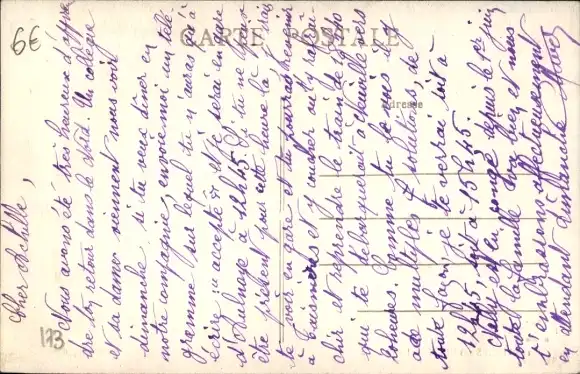 6€
CARTE POSTALE
Adresse
173
Cher Achille,
Nous avons été très heureux d'appren
dre ton retour dans le Nord. Un collègue
et sa dame viennent nous voir
dimanche. si tu veux être en
notre compagnie, envoie-moi un télé
gramme sur lequel tu n'auras qu'à
écrire "accepté" et je serai en gare
d'Aulnoye à 12h45. Si tu ne peux
être présent pour cette heure là, j'irais
te voir en gare et tu pourras venir
à et y coucher ou y repar
tir et reprendre le train de
qui te débarquerait à vers
heures. Comme tu le vois il y
a de multiples solutions, de
toute façon je te verrai soit à
12h45, soit à 15h45.
est en congé depuis le 1er juin
toute la famille va bien et nous
t'embrassons affectueusement
en attendant dimanche